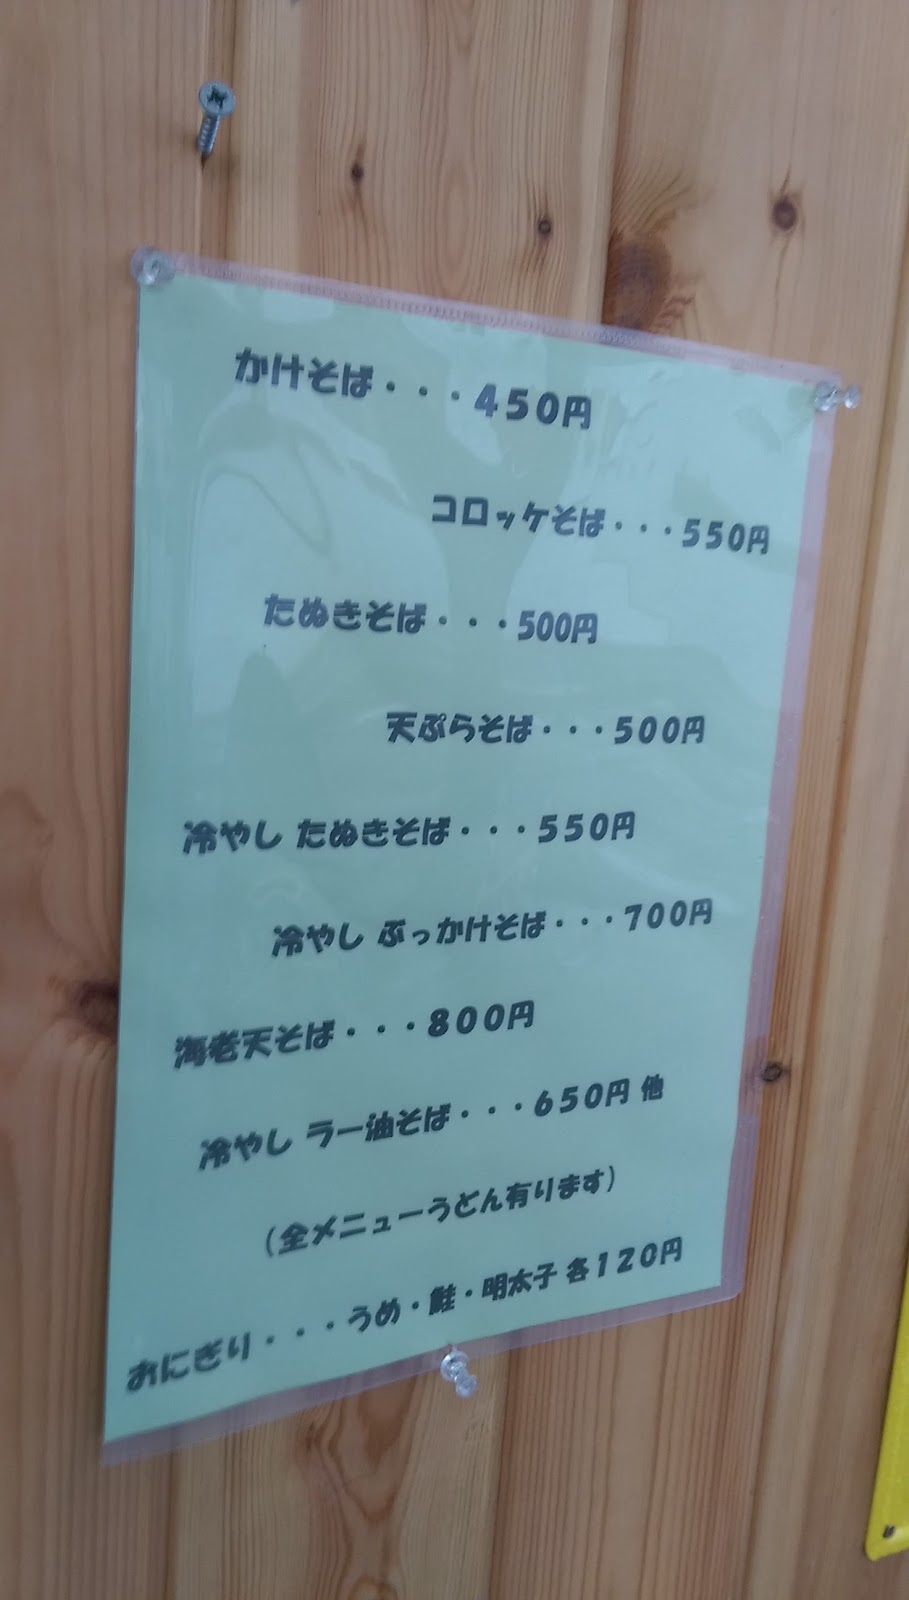 かけそば・・・450円
コロッケそば・・・550円
たぬきそば・・・500円
天ぷらそば・・・500円
冷やし たぬきそば・・・550円
冷やし ぶっかけそば・・・700円
海老天そば・・・800円
冷やし ラー油そば・・・650円 他
（全メニューうどん有ります）
おにぎり・・・うめ・鮭・明太子 各120円